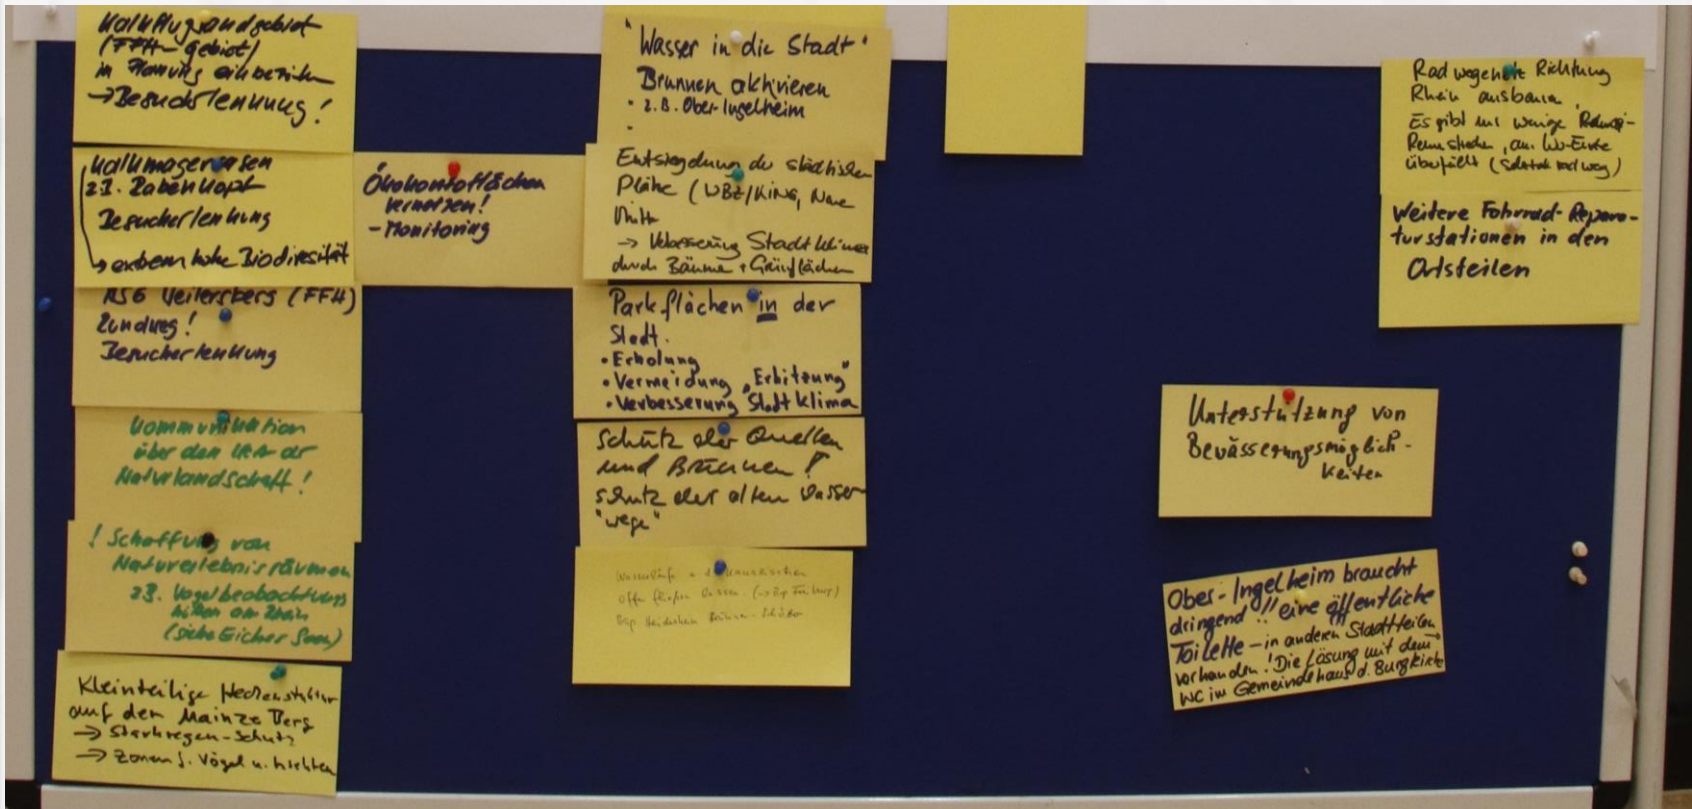 Kalkflugsandgebiet
(FFH-gebiet)
in Planung einbeziehen
→ Besuchslenkung!
Kalkmagerrasen
z.B. Rabenkopf
Besucherlenkung
→ extrem hohe Biodiversität
NSG Veilersberg (FFH)
Rundweg!
Besucherlenkung
Kommunikation
über den
Naturlandschaft!
! Schaffung von
Naturerlebnisräumen
z.B. Vogelbeobachtungs
hütten am Rhein
(siehe Eicher Seen)
Kleinteilige Heckenstruktur
auf den Mainzer Berg
→ Starkregen-Schutz
→ Zonen f. Vögel u.
Ökokontoflächen
vernetzen!
- Monitoring
"Wasser in die Stadt"
Brunnen aktivieren
· z.B. Ober-Ingelheim
Entsiegelung der städtischen
Plätze (WBZ/KING, Neue
Mitte
→ Verbesserung Stadtklima
durch Bäume + Grünflächen
Parkflächen in der
Stadt.
• Erholung
• Vermeidung „Erhitzung"
• Verbesserung Stadtklima
Schutz der Quellen
und Brunnen!
Schutz der alten Wasser
"wege"
Wasserläufe
offen fließen lassen.
Rad wegenetz Richtung
Rhein ausbauen,
Es gibt nur wenige
überfüllt
Weitere Fahrrad-Repara-
turstationen in den
Ortsteilen
Unterstützung von
Bewässerungsmöglich-
keiten
Ober-Ingelheim braucht
dringend!! eine öffentliche
Toilette - in anderen Stadtteilen
vorhanden! Die Lösung mit dem
WC im Gemeindehaus d. Burgkirche